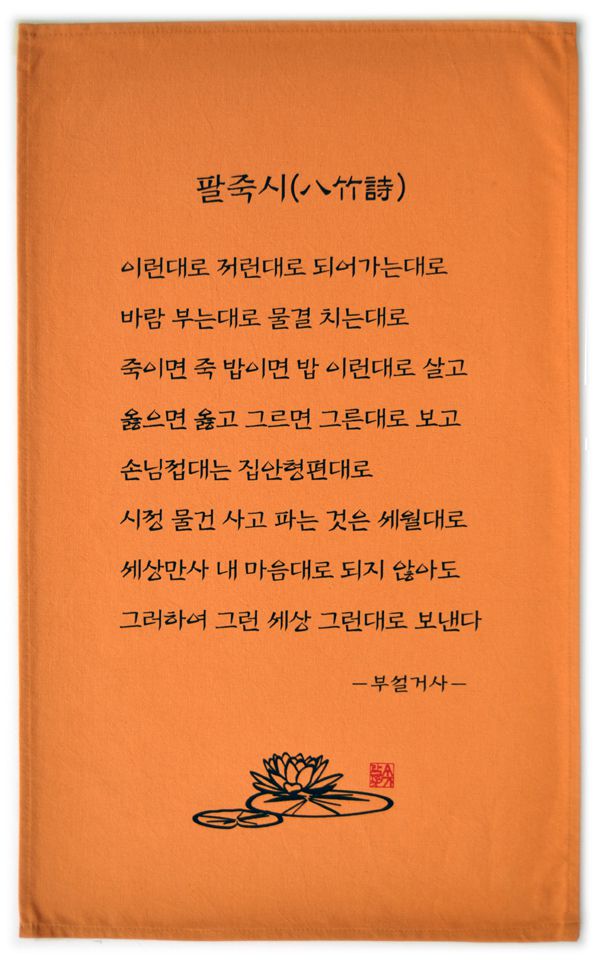 팔죽시(八竹詩)
이런대로 저런대로 되어가는대로
바람 부는대로 물결 치는대로
죽이면 죽 밥이면 밥 이런대로 살고
옳으면 옳고 그르면 그른대로 보고
손님접대는 집안형편대로
시정 물건 사고 파는 것은 세월대로
세상만사 내 마음대로 되지 않아도
그러하여 그런 세상 그런대로 보낸다
－부설거사－